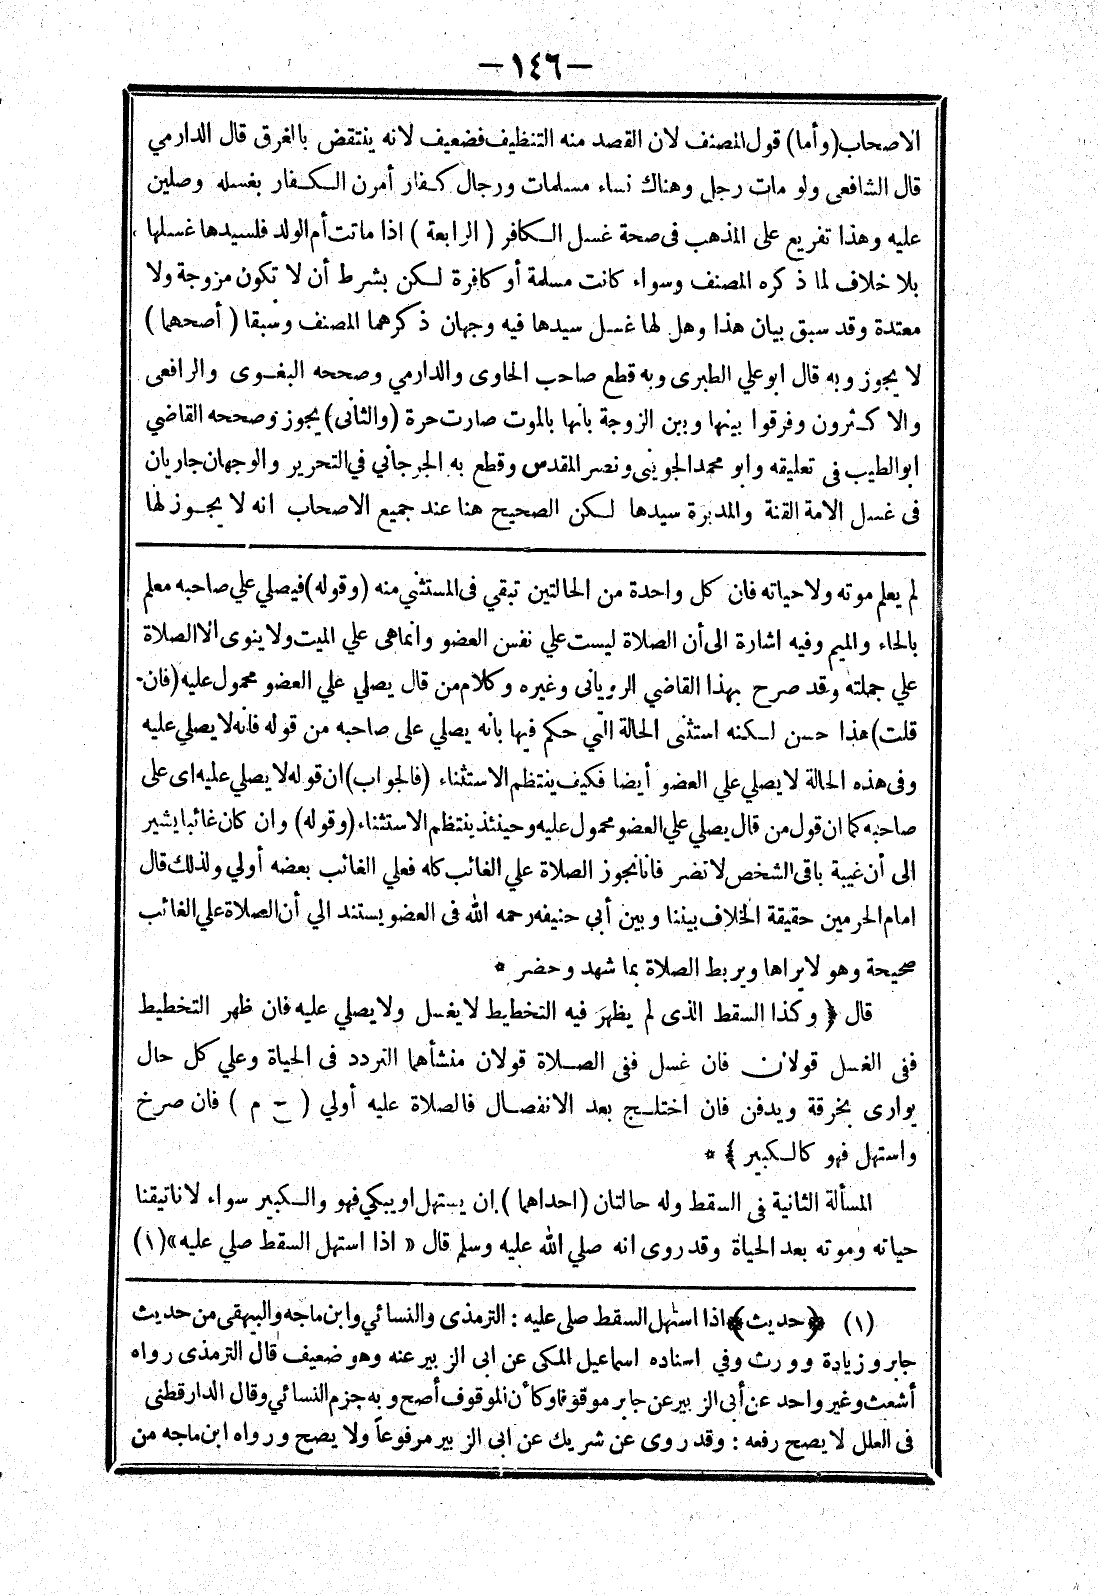 —١٤٦—
الاصحاب (وأما) قول المصنف لان القصد منه التنظيف فضعيف لانه ينتقض بالغرق قال الدارمي
قال الشافعى ولو مات رجل وهناك نساء مسلمات ورجال كفار أمرن الكفار بغسله وصلين
عليه وهذا تفريع على المذهب فى صحة غسل الكافر (الرابعة) اذا ماتت أم الولد فلسيدها غسلها
بلا خلاف لما ذكره المصنف وسواء كانت مسلمة أو كافرة لكن بشرط أن لا تكون مزوجة ولا
معتدة وقد سبق بيان هذا وهل لها غسل سيدها فيه وجهان ذكرهما المصنف وسبقا (أصحهما)
لا يجوز وبه قال ابو علي الطبرى وبه قطع صاحب الحاوى والدارمي وصححه البغوى والرافعى
والاكثرون وفرقوا بينها وبين الزوجة بأنها بالموت صارت حرة (والثانى) يجوز وصححه القاضي
ابو الطيب فى تعليقه وابو محمد الجوينى ونصر المقدس وقطع به الجرجاني في التحرير والوجهان جاريان
فى غسل الامة القنة والمدبرة سيدها لكن الصحيح هنا عند جميع الاصحاب انه لا يجوز لها
لم يعلم موته ولا حياته فان كل واحدة من الحالتين تبقي فى المستثنى منه (وقوله) فيصلي علي صاحبه معلم
بالحاء والميم وفيه اشارة الى أن الصلاة ليست علي نفس العضو وانما هى علي الميت ولا ينوى الا الصلاة
علي جملته وقد صرح بهذا القاضي الرويانى وغيره وكلام من قال يصلي علي العضو محمول عليه (فان
قلت) هذا حسن لكنه استثنى الحالة التي حكم فيها بانه يصلي على صاحبه من قوله فانه لا يصلي عليه
وفى هذه الحالة لا يصلي علي العضو أيضا فكيف ينتظم الاستثناء (فالجواب) ان قوله لا يصلي عليه اى على
صاحبه كما ان قول من قال يصلي علي العضو محمول عليه وحينئذ ينتظم الاستثناء (وقوله) وان كان غائبا يشير
الى أن غيبة باقى الشخص لا تضر فانا نجوز الصلاة علي الغائب كله فعلي الغائب بعضه أولي ولذلك قال
امام الحرمين حقيقة الخلاف بيننا وبين أبي حنيفه رحمه الله فى العضو يستند الي أن الصلاة علي الغائب
صحيحة وهو لا يراها ويربط الصلاة بما شهد وحضر *
قال ﴿ وكذا السقط الذى لم يظهر فيه التخطيط لا يغسل ولا يصلي عليه فان ظهر التخطيط
ففى الغسل قولان فان غسل ففى الصلاة قولان منشأهما التردد فى الحياة وعلي كل حال
يوارى بخرقة ويدفن فان اختلج بعد الانفصال فالصلاة عليه أولي (ح م) فان صرخ
واستهل فهو كالكبير ﴾ *
المسألة الثانية فى السقط وله حالتان (احداهما) ان يستهل او يبكي فهو والكبير سواء لانا تيقنا
حياته وموته بعد الحياة وقد روى انه صلي الله عليه وسلم قال « اذا استهل السقط صلي عليه» (١)
(١) ﴿حديث﴾ اذا استهل السقط صلى عليه : الترمذى والنسائي وابن ماجه والبيهقى من حديث
جابر وزيادة وورث وفي اسناده اسماعيل المكى عن ابى الزبير عنه وهو ضعيف قال الترمذى رواه
أشعث وغير واحد عن أبى الزبير عن جابر موقوفا وكأن الموقوف أصح وبه جزم النسائي وقال الدارقطنى
فى العلل لا يصح رفعه : وقد روى عن شريك عن ابى الزبير مرفوعاً ولا يصح ورواه ابن ماجه من